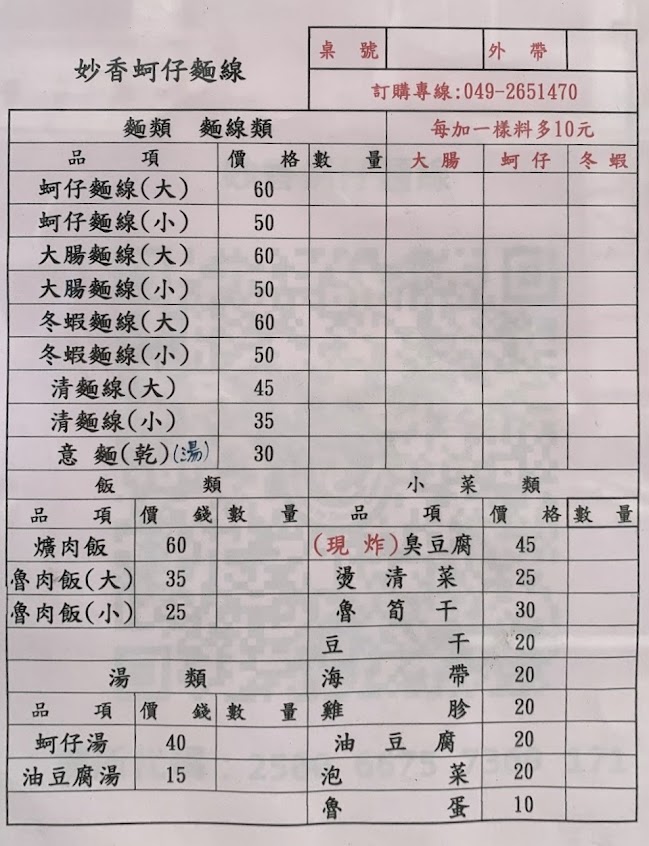 妙香蚵仔麵線
桌號 外帶
訂購專線:049-2651470
麵類 麵線類 每加一樣料多10元
品項 價格 數量 大腸 蚵仔 冬蝦
蚵仔麵線(大) 60
蚵仔麵線(小) 50
大腸麵線(大) 60
大腸麵線(小) 50
冬蝦麵線(大) 60
冬蝦麵線(小) 50
清麵線(大) 45
清麵線(小) 35
意麵(乾)(湯) 30
飯類
品項 價錢 數量
爌肉飯 60
魯肉飯(大) 35
魯肉飯(小) 25
湯類
品項 價錢 數量
蚵仔湯 40
油豆腐湯 15
小菜類
品項 價格 數量
(現炸)臭豆腐 45
燙清菜 25
魯筍干 30
豆干 20
海帶 20
雞胗 20
油豆腐 20
泡菜 20
魯蛋 10